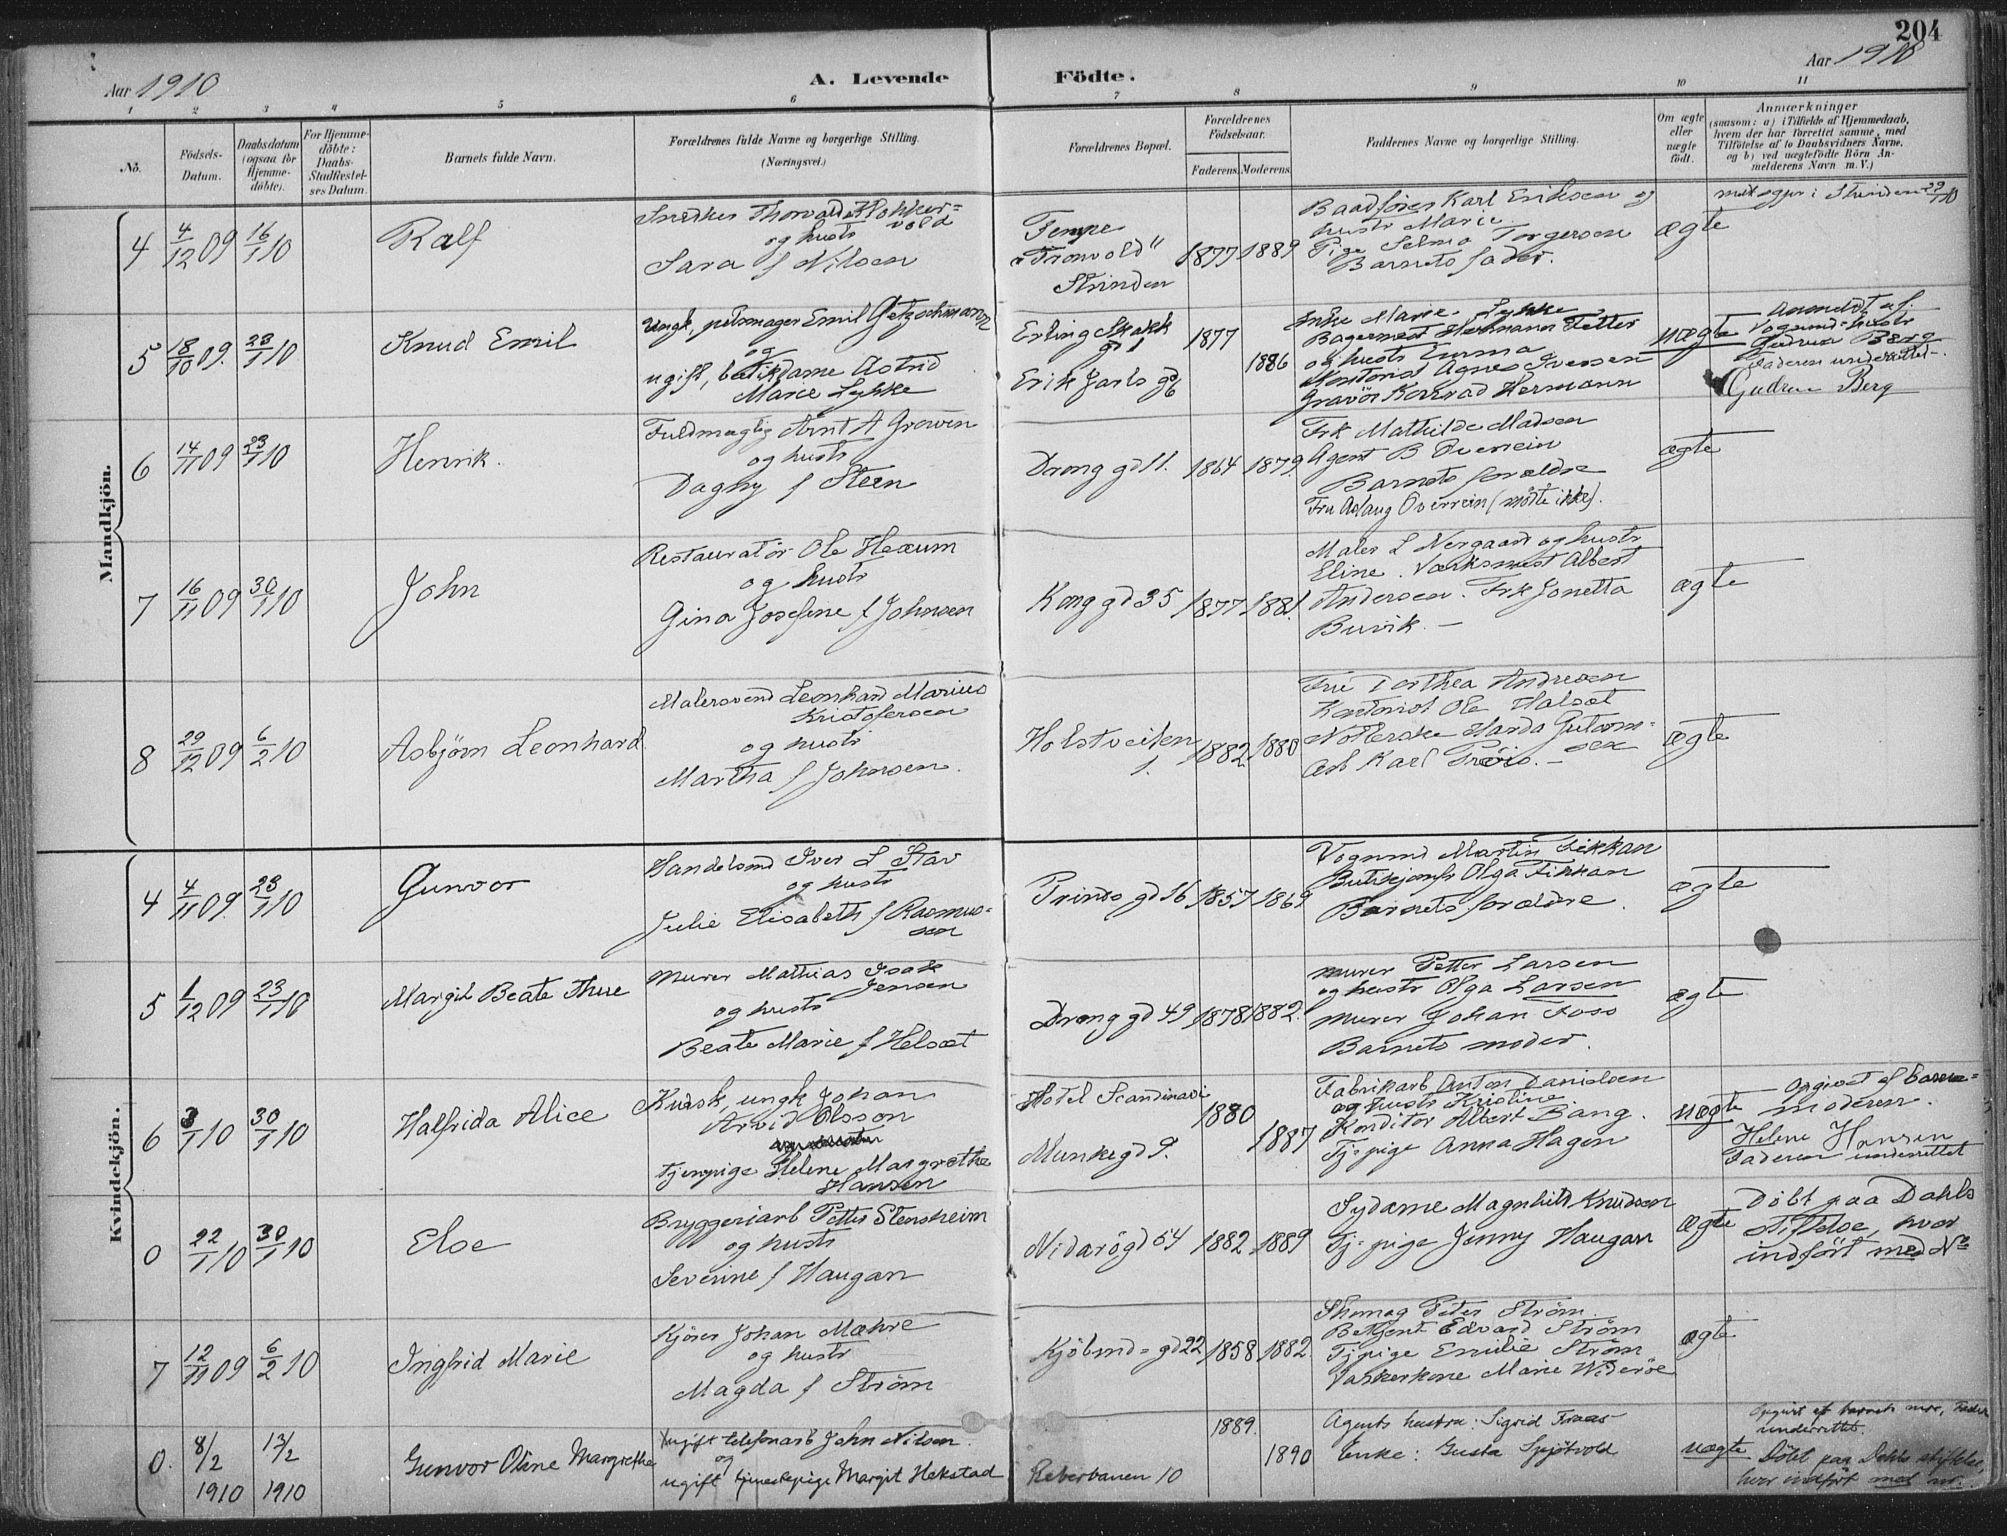 204
Aar 1910
A. Levende Födte.
Aar 1910
1 2 3 4 5 6 7 8 9 10 11
No.
Födsels-Datum.
Daabsdatum (ogsaa for Hjemme-döbte).
For Hjemme-döbte: Daabs-Stadfæstel-ses Datum.
Barnets fulde Navn.
Forældrenes fulde Navne og borgerlige Stilling.
(Næringsvei.)
Forældrenes Bopæl.
Forældrenes Födselsaar.
Faderens. Moderens.
Faddernes Navne og borgerlige Stilling.
Om ægte eller uægte födt.
Anmærkninger
(saasom: a) i Tilfælde af Hjemmedaab,
hvem der har forrettet samme, med
Tilföielse af to Daabsvidners Navne,
og b) ved uægtefödte Börn An-
melderens Navn m. V.)
Mandkjön.
4 4/12 09 16/1 10
Ralf
Snedker Thorvald Klokker=
vold
og hustr
Sara f Nilsen
Tempe
"Tronvold"
Strinden
1877 1889
Baadförer Karl Eriksen og
hustr Marie
Pige Selma Torgersen
Barnets fader.
ægte
Strinden 29/1 10
5 18/10 09. 23/1 10
Knud Emil
Ungk, petsmager Emil Getzschmann
og
ugift, butikdame Astrid
Marie Lykke
Erling Skakk
gd 1
Erik Jarls gd 6
1877
1886
Enke Marie Lykke
Bagermest Hermann Tetter
og hustr Emma
Kontorist Agnes Iversen
Gravör Konrad Hermann
uægte
Anmeldt af
Vognmd-hustr
Gudrun Berg
Faderen underrettet-.
Gudrun Berg
6 14/11 09 23/1 10
Henrik.
Fuldmægtig Arnt A Growen
og hustr
Dagny f Steen
Drong gd 11.
1864 1879.
Frk Mathilde Madsen
Agent B Overrein
Barnets forældre
Fru Aslaug Overrein (mötte ikke).
ægte
7 16/11 09 30/1 10
John
Restauratör Ole Hexum
og hustr
Gina Josefine f Johnsen
Kong gd 35
1877 1881.
Maler L Nergaard og hustr
Eline. Værksmest Albert
Andersen. Frk Jonetta
Buvik. -
ægte
8 29/12 09 6/2 10
Asbjörn Leonhard
Malersvend Leonhard Marius
Kristofersen
og hustr
Martha f Johnsen.
Holstveiten
1.
1882 1880
Fru Dorthea Andresen
Kontorist Ole Halset
Notterske Harda Gutorm=
sen
Arb Karl Pröis. -
ægte
Kvindekjön.
4 4/11 09. 23/1 10
Gunvor
Handelsmd Iver L Stav
og hustr
Julie Elisabeth f Rasmus=
sen
Prinds gd 16
1857 1869
Vognmd Martin Fikkan
Butikjomfr Olga Fikkan
Barnets forældre.
ægte
5 1/12 09 23/1 10
Margit Beate Thue
Murer Mathias Isak
Jensen
og hustr
Beate Marie f Helset
Drong gd 49
1878 1882.
Murer Petter Larsen
og hustr Olga Larsen
Murer Johan Foss
Barnets moder.
ægte
6 3/1 10 30/1 10
Halfrida Alice
Kudsk, ungk Johan
Arvid Olsson
Tjenpige Helene Margrethe
Hansen
Hotel Scandinavi
Munkegd 9.
1880
1887
Fabrikarb Anton Danielsen
og hustr Kristine
Konditor Albert Bang.
Tj=pige Anna Hagen
uægte
Opgivet af barne=
moderen.
Helene Hansen
Faderen underrettet
0 22/1 10 30/1 10
Else
Bryggeriarb Petter Stensheim
og hustr
Severine f Haugan
Nidarögd 54
1882 1889
Sydame Magnhild Knudsen
Tj=pige Jenny Haugan
ægte
Döbt paa Dahls
Stiftelse, hvor
indfört med No
7 12/11 09 6/2 10
Ingfrid Marie
Kjörer Johan Mæhre
og hustr
Magda f Ström
Kjöbmd=gd 22
1858 1882
Skomag Peter Ström.
Betjent Edvard Ström
Tjpige Emilie Ström
Vaskerkone Marie Wideröe
ægte
0. 8/2 1910 13/2 1910
Gunvor Oline Margrethe
Ugift telefonarb John Nilsen.
og
ugift tjenestepige Margit Hekstad
Reberbanen 10
1889.
1890
Agents hustru: Sigrid Fraas
Enke: Gusta Spjötvold
uægte
Opgivet af barnets mor, Fader
underrettet.
Döbt paa Dahls stiftelse,
hvor indfört med nr.